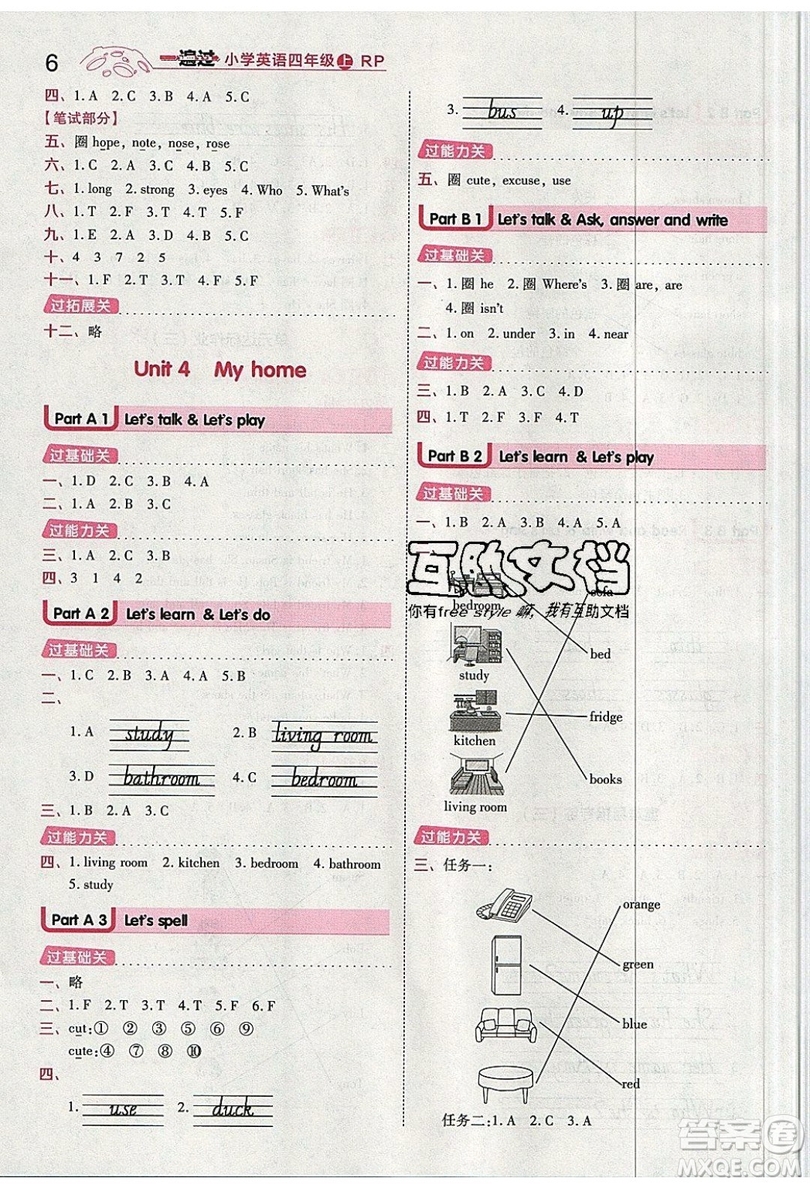 6 一遍过 小学英语四年级上 RP
四、1. A 2. C 3. B 4. A 5. C
【笔试部分】
五、圈 hope, note, nose, rose
六、1. C 2. A 3. C 4. B 5. C
七、1. long 2. strong 3. eyes 4. Who 5. What's
八、1. T 2. F 3. T 4. T 5. F
九、1. E 2. A 3. D 4. C 5. B
十、4 3 7 2 5
十一、1. F 2. T 3. F 4. T 5. F
过拓展关
十二、略
Unit 4 My home
Part A 1 Let's talk & Let's play
过基础关
一、1. D 2. C 3. B 4. A
二、1. B 2. A 3. C
过能力关
三、1. C 2. A 3. B
四、3 1 4 2
Part A 2 Let's learn & Let's do
过基础关
一、1. C 2. A 3. A 4. C 5. B
二、
1. A study 2. B living room
3. D bathroom 4. C bedroom
三、1. B 2. A 3. C
过能力关
四、1. living room 2. kitchen 3. bedroom 4. bathroom
5. study
Part A 3 Let's spell
过基础关
一、略
二、1. F 2. T 3. T 4. T 5. F 6. F
三、cut: ① ② ③ ⑤ ⑦ ⑨
cute: ④ ⑥ ⑧ ⑩
四、
1. use 2. duck
3. bus 4. up
过能力关
五、圈 cute, excuse, use
Part B 1 Let's talk & Ask, answer and write
过基础关
一、1. 圈 he 2. 圈 Where's 3. 圈 are, are
4. 圈 isn't
二、1. on 2. under 3. in 4. near
过能力关
三、1. B 2. A 3. C 4. D
四、1. T 2. F 3. F 4. T
Part B 2 Let's learn & Let's play
过基础关
一、1. B 2. A 3. A 4. A 5. A
互助文档
sofa
bedroom
你有free style嘛，我有互助文档
bed
study
fridge
kitchen
books
living room
过能力关
三、任务一：
orange
green
blue
red
任务二：1. A 2. C 3. A
答案卷
MXQE.COM